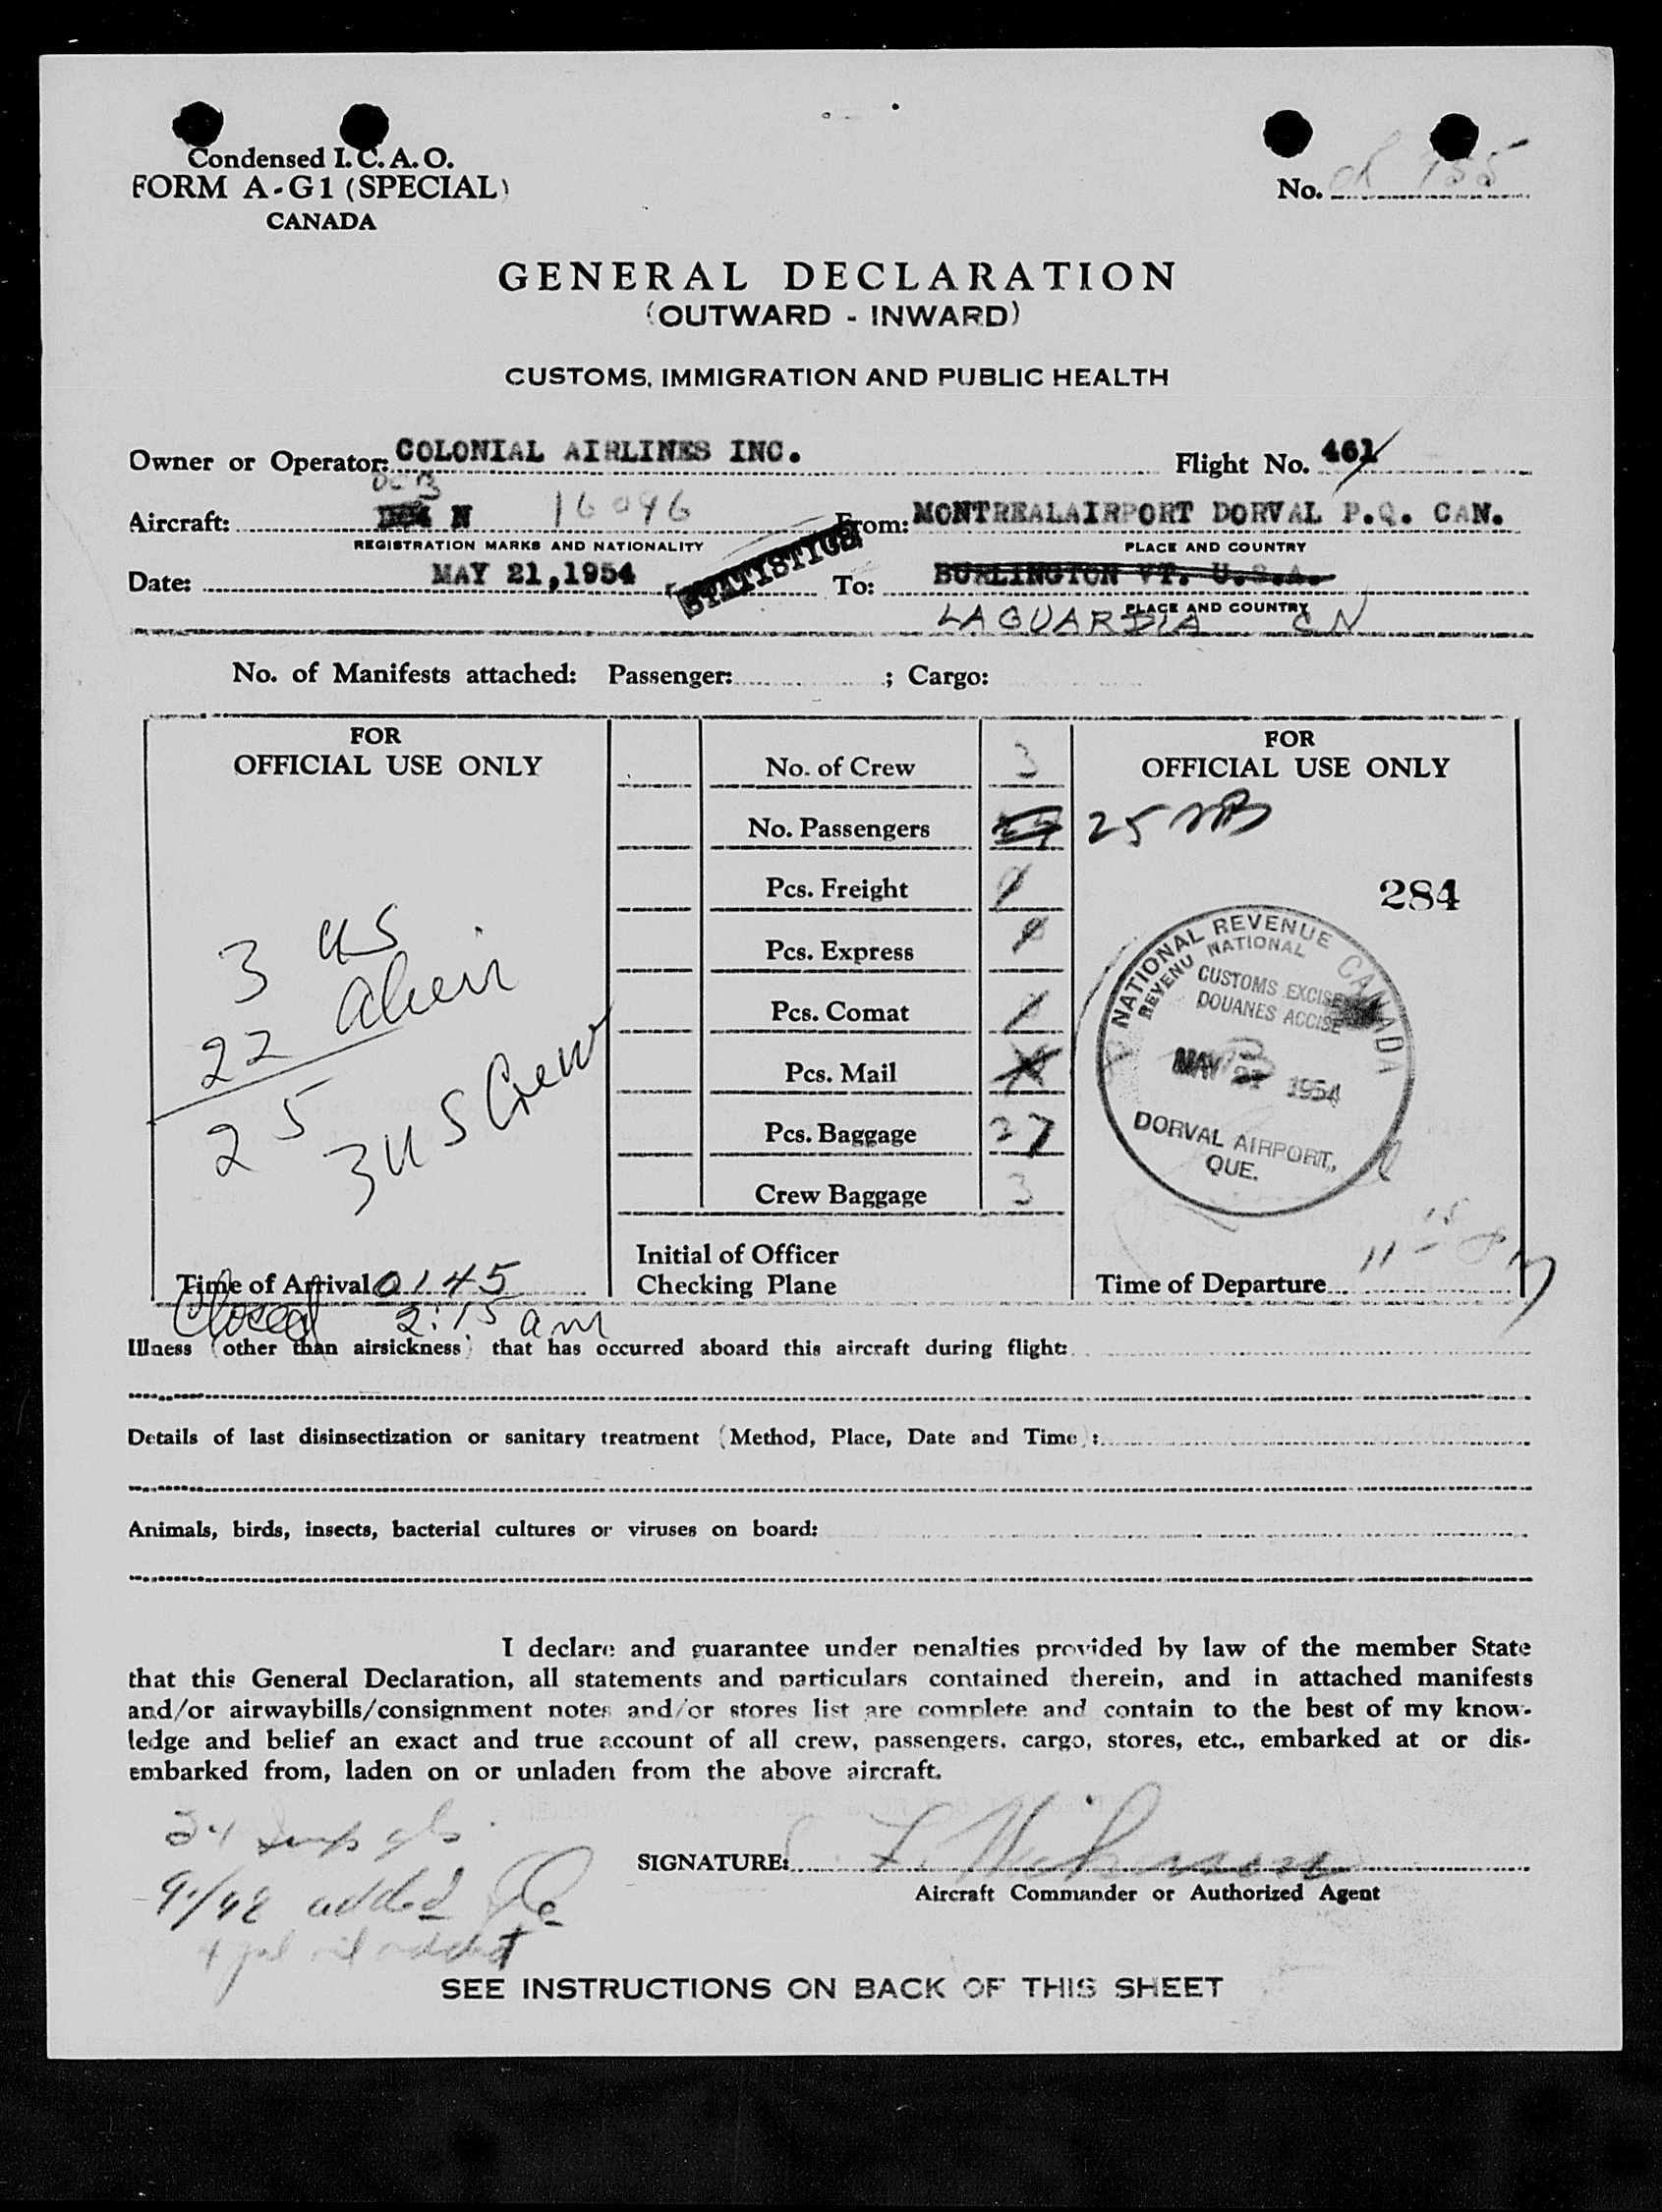 Condensed I. C. A. O.
FORM A-G1 (SPECIAL)
CANADA
No. 755
GENERAL DECLARATION
(OUTWARD - INWARD)
CUSTOMS, IMMIGRATION AND PUBLIC HEALTH
Owner or Operator: COLONIAL AIRLINES INC. Flight No. 461
DC3
Aircraft: N 16096 From: MONTREALAIRPORT DORVAL P.Q. CAN.
REGISTRATION MARKS AND NATIONALITY PLACE AND COUNTRY
STATISTICS
Date: MAY 21,1954 To: BURLINGTON VT. U.S.A.
PLACE AND COUNTRY
LA GUARDIA
No. of Manifests attached: Passenger: ; Cargo:
FOR
OFFICIAL USE ONLY
3 US
22 alien
25
3 US Crew
Time of Arrival 0145
Closed 2:15 am
No. of Crew 3
No. Passengers
Pcs. Freight
Pcs. Express
Pcs. Comat
Pcs. Mail
Pcs. Baggage 27
Crew Baggage 3
Initial of Officer
Checking Plane
FOR
OFFICIAL USE ONLY
25
284
NATIONAL REVENUE CANADA
REVENU NATIONAL
CUSTOMS EXCISE
DOUANES ACCISE
MAY 1954
DORVAL AIRPORT,
QUE.
Time of Departure 11-15
Illness (other than airsickness) that has occurred aboard this aircraft during flight:
Details of last disinsectization or sanitary treatment (Method, Place, Date and Time):
Animals, birds, insects, bacterial cultures or viruses on board:
I declare and guarantee under penalties provided by law of the member State
that this General Declaration, all statements and particulars contained therein, and in attached manifests
and/or airwaybills/consignment notes and/or stores list are complete and contain to the best of my know-
ledge and belief an exact and true account of all crew, passengers, cargo, stores, etc., embarked at or dis-
embarked from, laden on or unladen from the above aircraft.
SIGNATURE:
Aircraft Commander or Authorized Agent
added
4 gal oil added
SEE INSTRUCTIONS ON BACK OF THIS SHEET